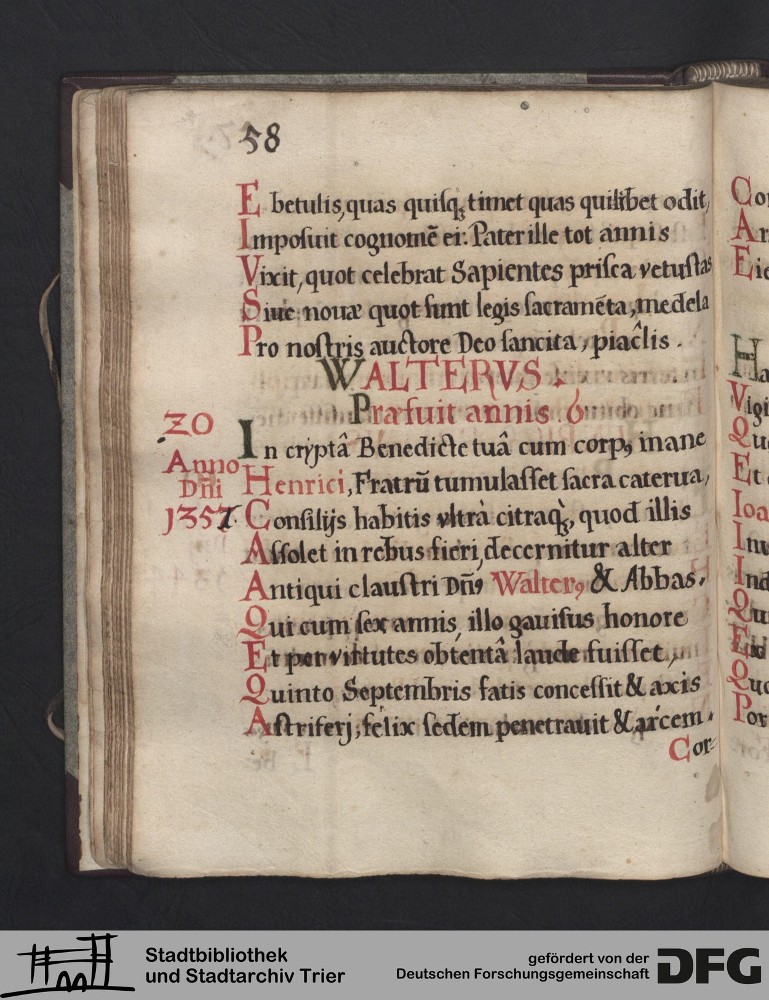 58
E betulis, quas quisq₃ timet quas quilibet odit,
Imposuit cognomē ei: Pater ille tot annis
Vixit, quot celebrat Sapientes prisca vetustas
Siue nouæ quot sunt legis sacramēta, medela
Pro nostris auctore Deo sancita, piac̑lis.
WALTERVS.
Præfuit annis 6
20
Anno
Dñi
1357.
In cryptâ Benedicte tuâ cum corpꝰ inane
Henrici, Fratrū tumulasset sacra caterua,
Consilijs habitis vltrà citraq₃, quod illis
Assolet in rebus fieri, decernitur alter
Antiqui claustri Dñꝰ Walterꝰ & Abbas.
Qui cum sex annis, illo gauisus honore
Et per virtutes obtentâ laude fuisset,
Quinto Septembris fatis concessit & axis
Astriferj, felix sedem penetrauit & arcem.
Cor-
Co
Ar
Eic
Ha
Vigi
Qu
Et
Ioa
Inu
Ind
Qu
Quo
Por
Stadtbibliothek
und Stadtarchiv Trier
gefördert von der
Deutschen Forschungsgemeinschaft
DFG